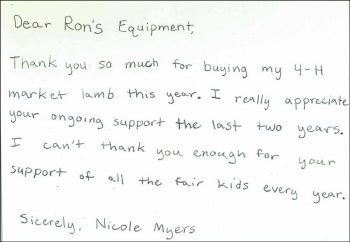 Dear Ron's Equipment,
Thank you so much for buying my 4-H
market lamb this year. I really appreciate
your ongoing support the last two years.
I can't thank you enough for your
support of all the fair kids every year.
Sicerely, Nicole Myers